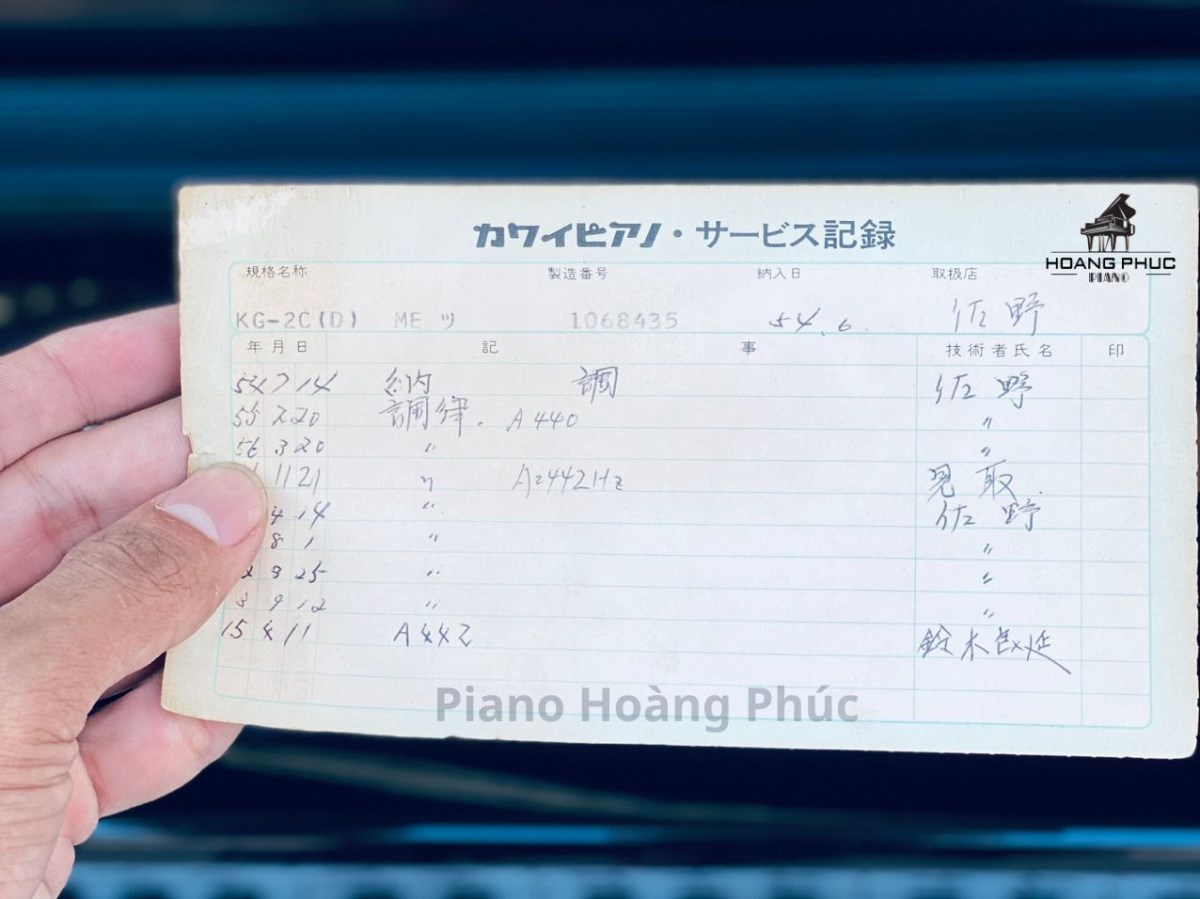 カワイピアノ・サービス記録
HOANG PHUC
PIANO
規格名称 製造番号 納入日 取扱店
KG-2C(D) ME ツ 1068435 54.6. 佐野
年月日 記事 技術者氏名 印
54 7 14 納調 佐野
55 2 20 調律. A440 〃
56 3 20 〃 〃
11 21 〃 A=442Hz 見取
4 14 〃 佐野
8 1 〃 〃
3 25 〃 〃
3 9 12 〃 〃
15 4 11 A442 鈴木
Piano Hoàng Phúc